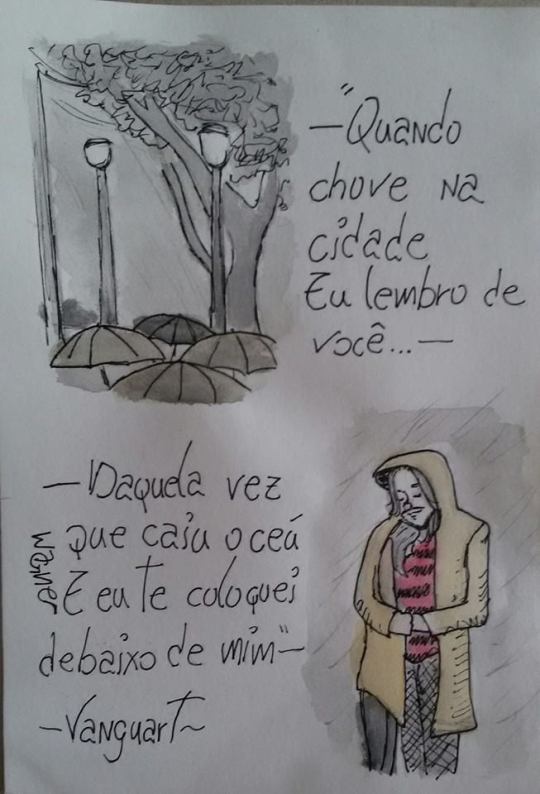 —"Quando
chove na
cidade
Eu lembro de
você...—
—Daquela vez
que caiu o ceú
E eu te coloquei
debaixo de mim"—
—Vanguart~